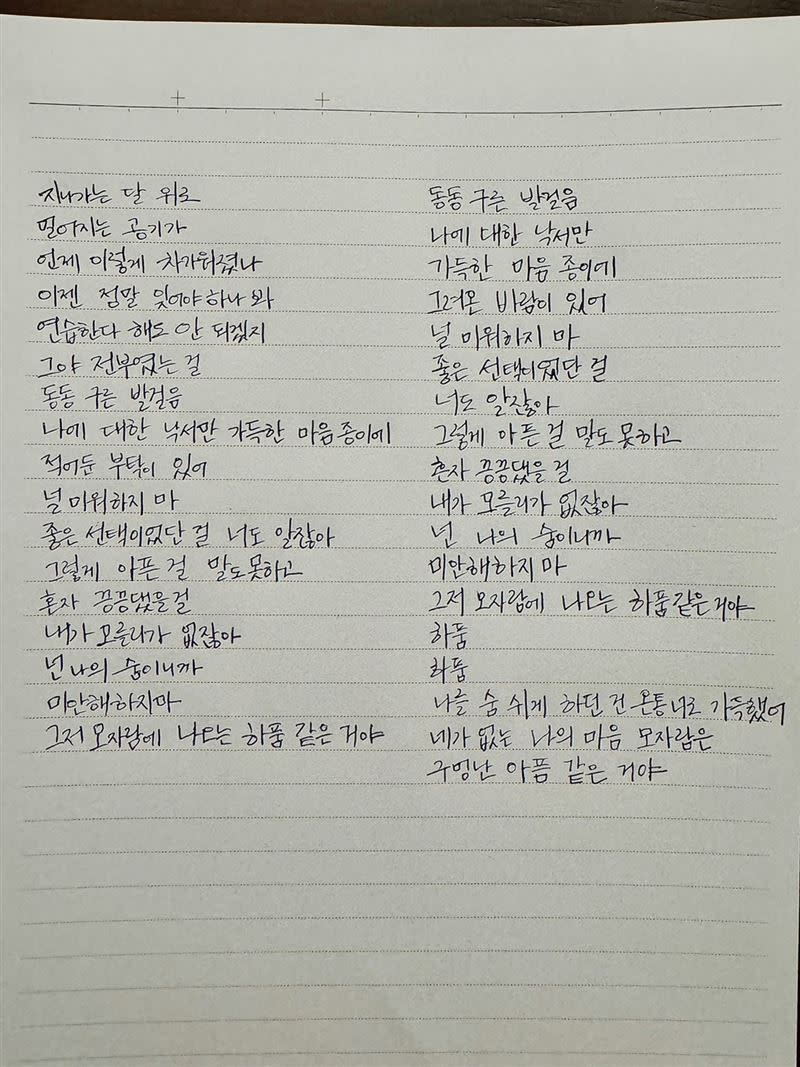 지나가는 달 위로
멀어지는 공기가
언제 이렇게 차가워졌나
이젠 정말 잊어야 하나 봐
연습한다 해도 안 되겠지
그야 전부였는 걸
동동 구른 발걸음
나에 대한 낙서만 가득한 마음종이에
적어둔 부탁이 있어
널 미워하지 마
좋은 선택이었단 걸 너도 알잖아
그렇게 아픈 걸 말도 못하고
혼자 끙끙댔을 걸
내가 모를리가 없잖아
넌 나의 숨이니까
미안해하지마
그저 모자람에 나오는 하품 같은 거야
동동 구른 발걸음
나에 대한 낙서만
가득한 마음 종이에
그려온 바람이 있어
널 미워하지 마
좋은 선택이었단 걸
너도 알잖아
그렇게 아픈 걸 말도 못하고
혼자 끙끙댔을 걸
내가 모를리가 없잖아
넌 나의 숨이니까
미안해하지 마
그저 모자람에 나오는 하품같은 거야
하품
하품
나를 숨 쉬게 하던 건 온통 너로 가득했어
네가 없는 나의 마음 모자람은
구멍난 아픔 같은 거야